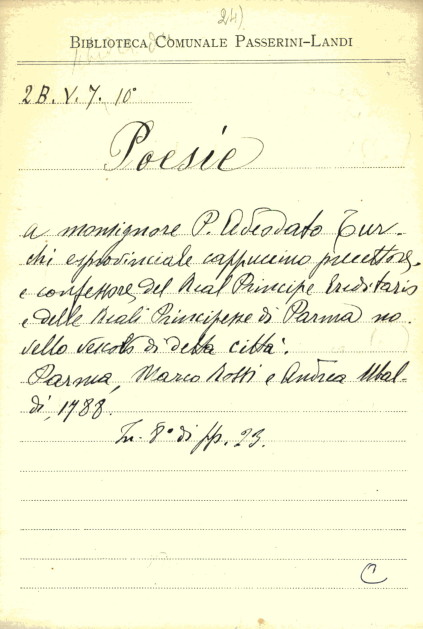 24)
BIBLIOTECA COMUNALE PASSERINI-LANDI
2B. V. 7. 10°
Poesie
a monsignore P. Adeodato Tur-
chi exprovinciale cappuccino precettore,
e confessore, del Real Principe Ereditario
e delle Reali Principesse di Parma no-
vello vescovo di detta città.
Parma, Marco Rossi e Andrea Ubal-
di, 1788.
In-8° di pp. 23.
C